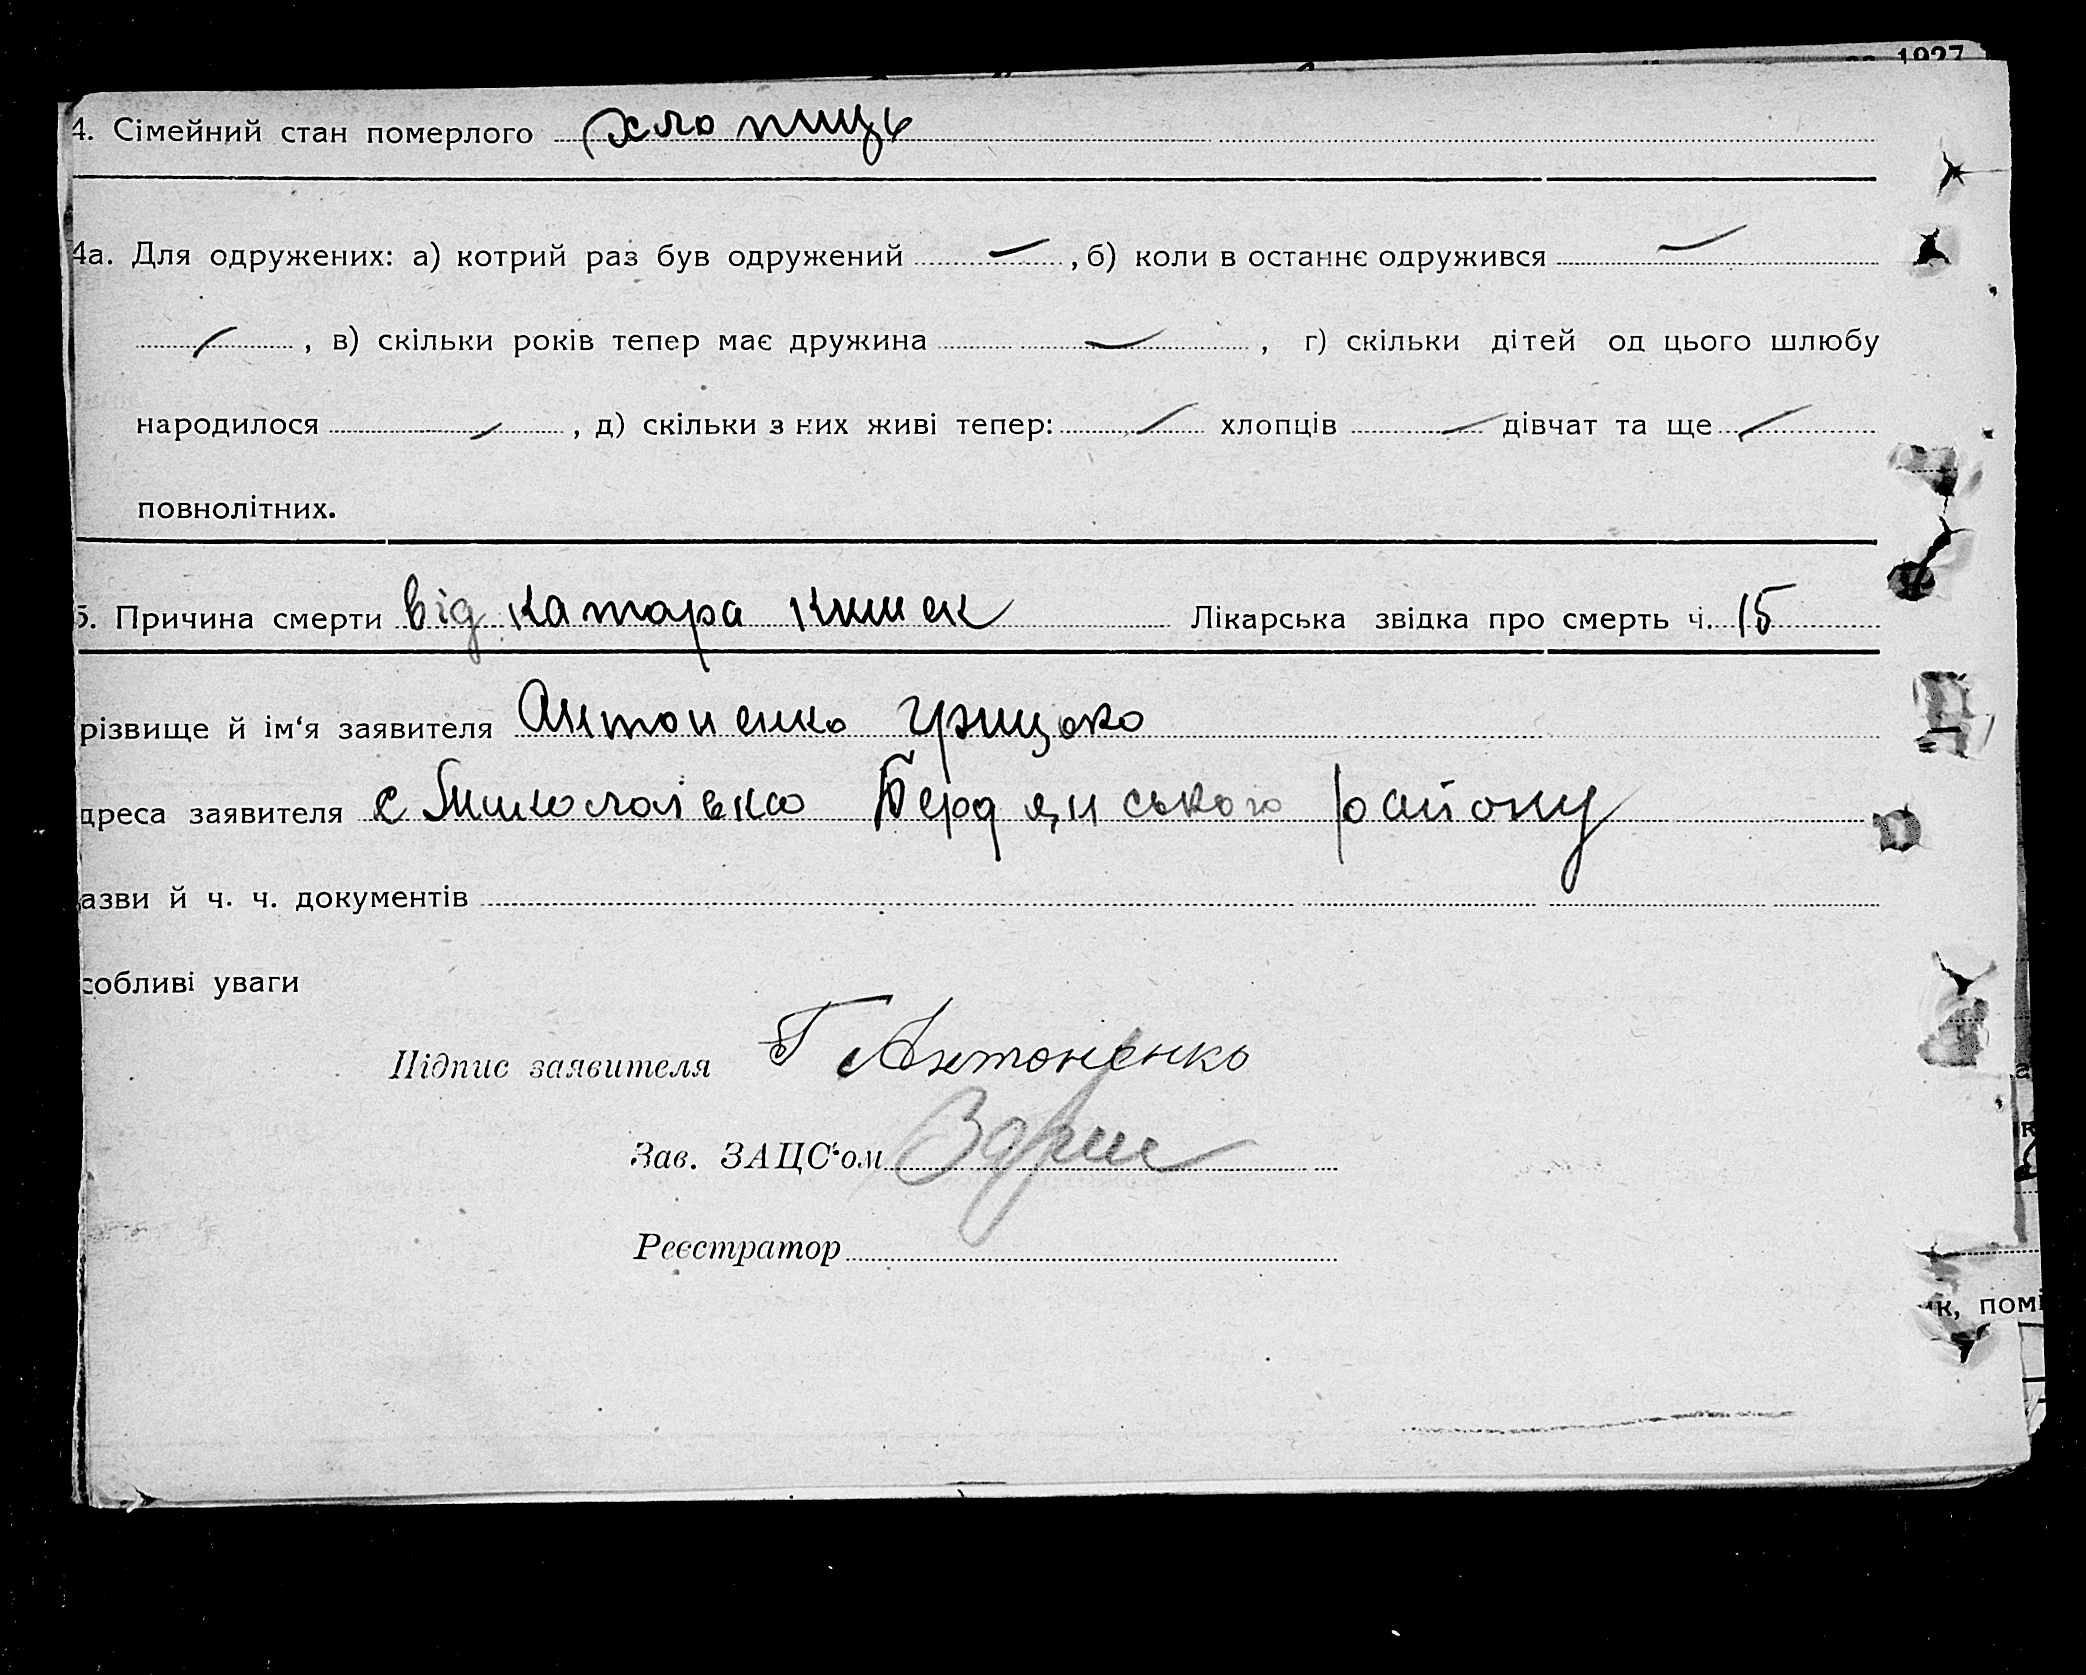 1927
4. Сімейний стан померлого хлопиць
4а. Для одружених: а) котрий раз був одружений —, б) коли в останнє одружився —
—, в) скільки років тепер має дружина —, г) скільки дітей од цього шлюбу
народилося —, д) скільки з них живі тепер: — хлопців — дівчат та ще —
повнолітних.
5. Причина смерти від катара кишек Лікарська звідка про смерть ч. 15
різвище й ім‘я заявителя Антоненко Грицько
дреса заявителя с Миколаівка Бердянського району
азви й ч. ч. документів
собливі уваги
Підпис заявителя Г Антоненко
Зав. ЗАЦС‘ом
Реєстратор
ик, помі